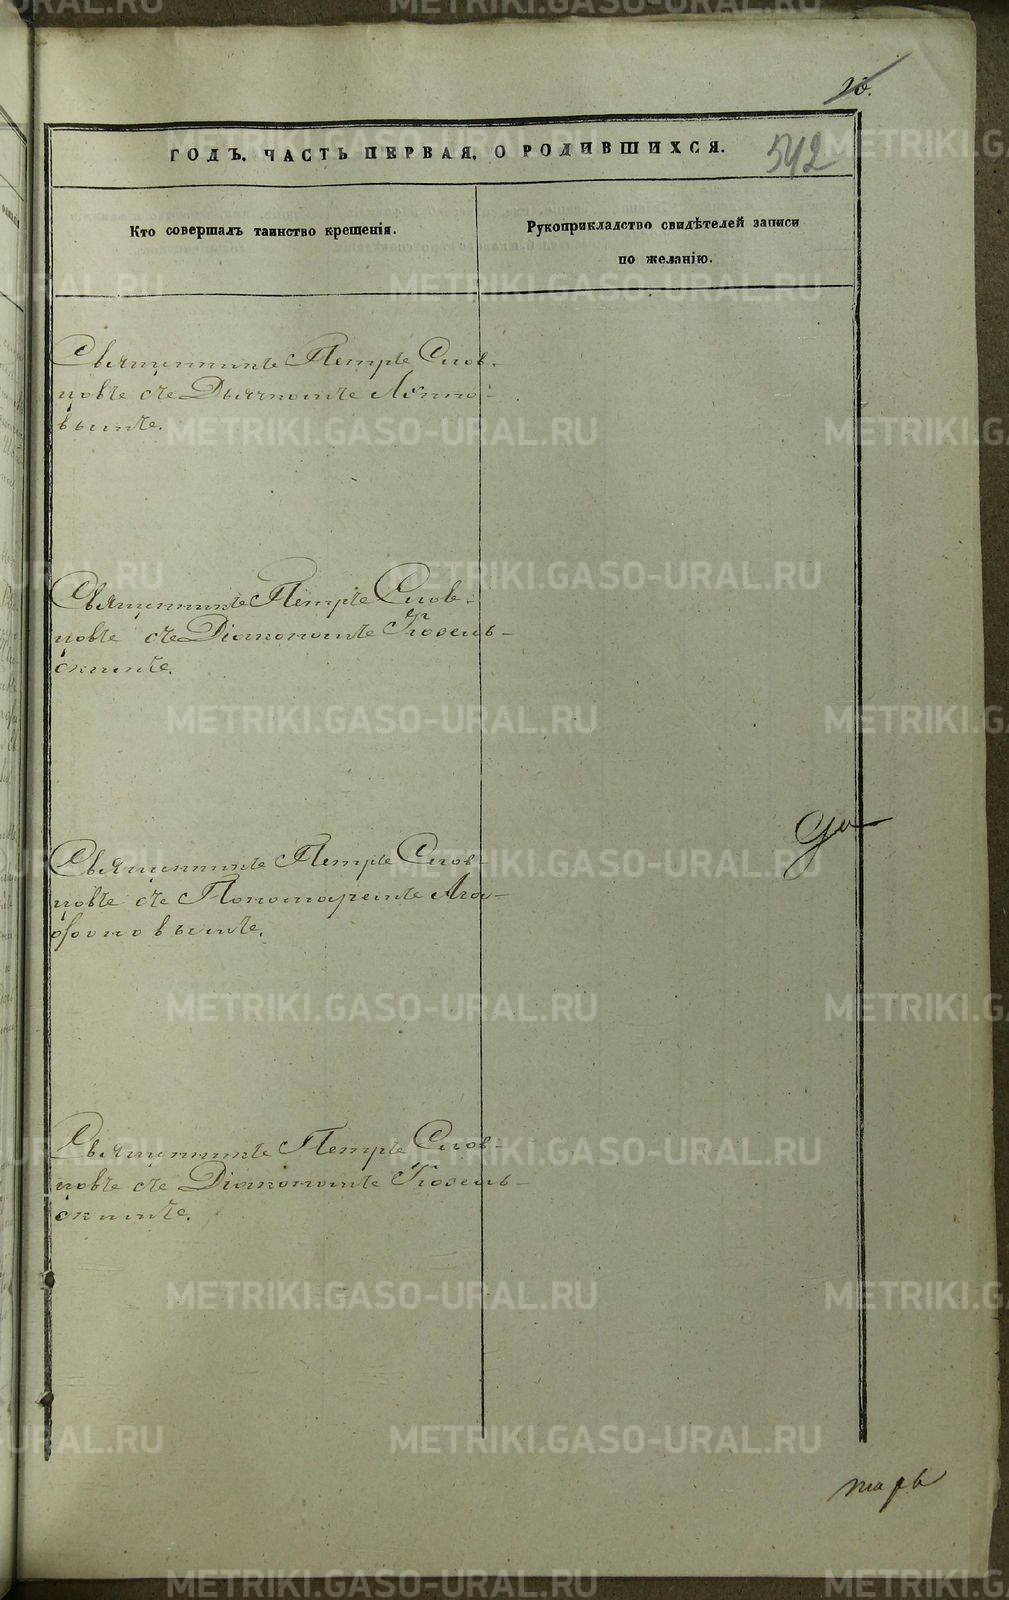 26.
542
ГОДЪ. ЧАСТЬ ПЕРВАЯ, О РОДИВШИХСЯ.
Кто совершалъ таинство крещенія.
Рукоприкладство свидѣтелей записи
по желанію.
Священникъ Петръ Слов-
цовъ съ Дьячкомъ
вымъ.
Священникъ Петръ Слов-
цовъ съ Діакономъ Козель-
скимъ.
Священникъ Петръ Слов-
цовъ съ Пономаремъ Ага-
фоновымъ.
Священникъ Петръ Слов-
цовъ съ Діакономъ Козель-
скимъ.
METRIKI.GASO-URAL.RU